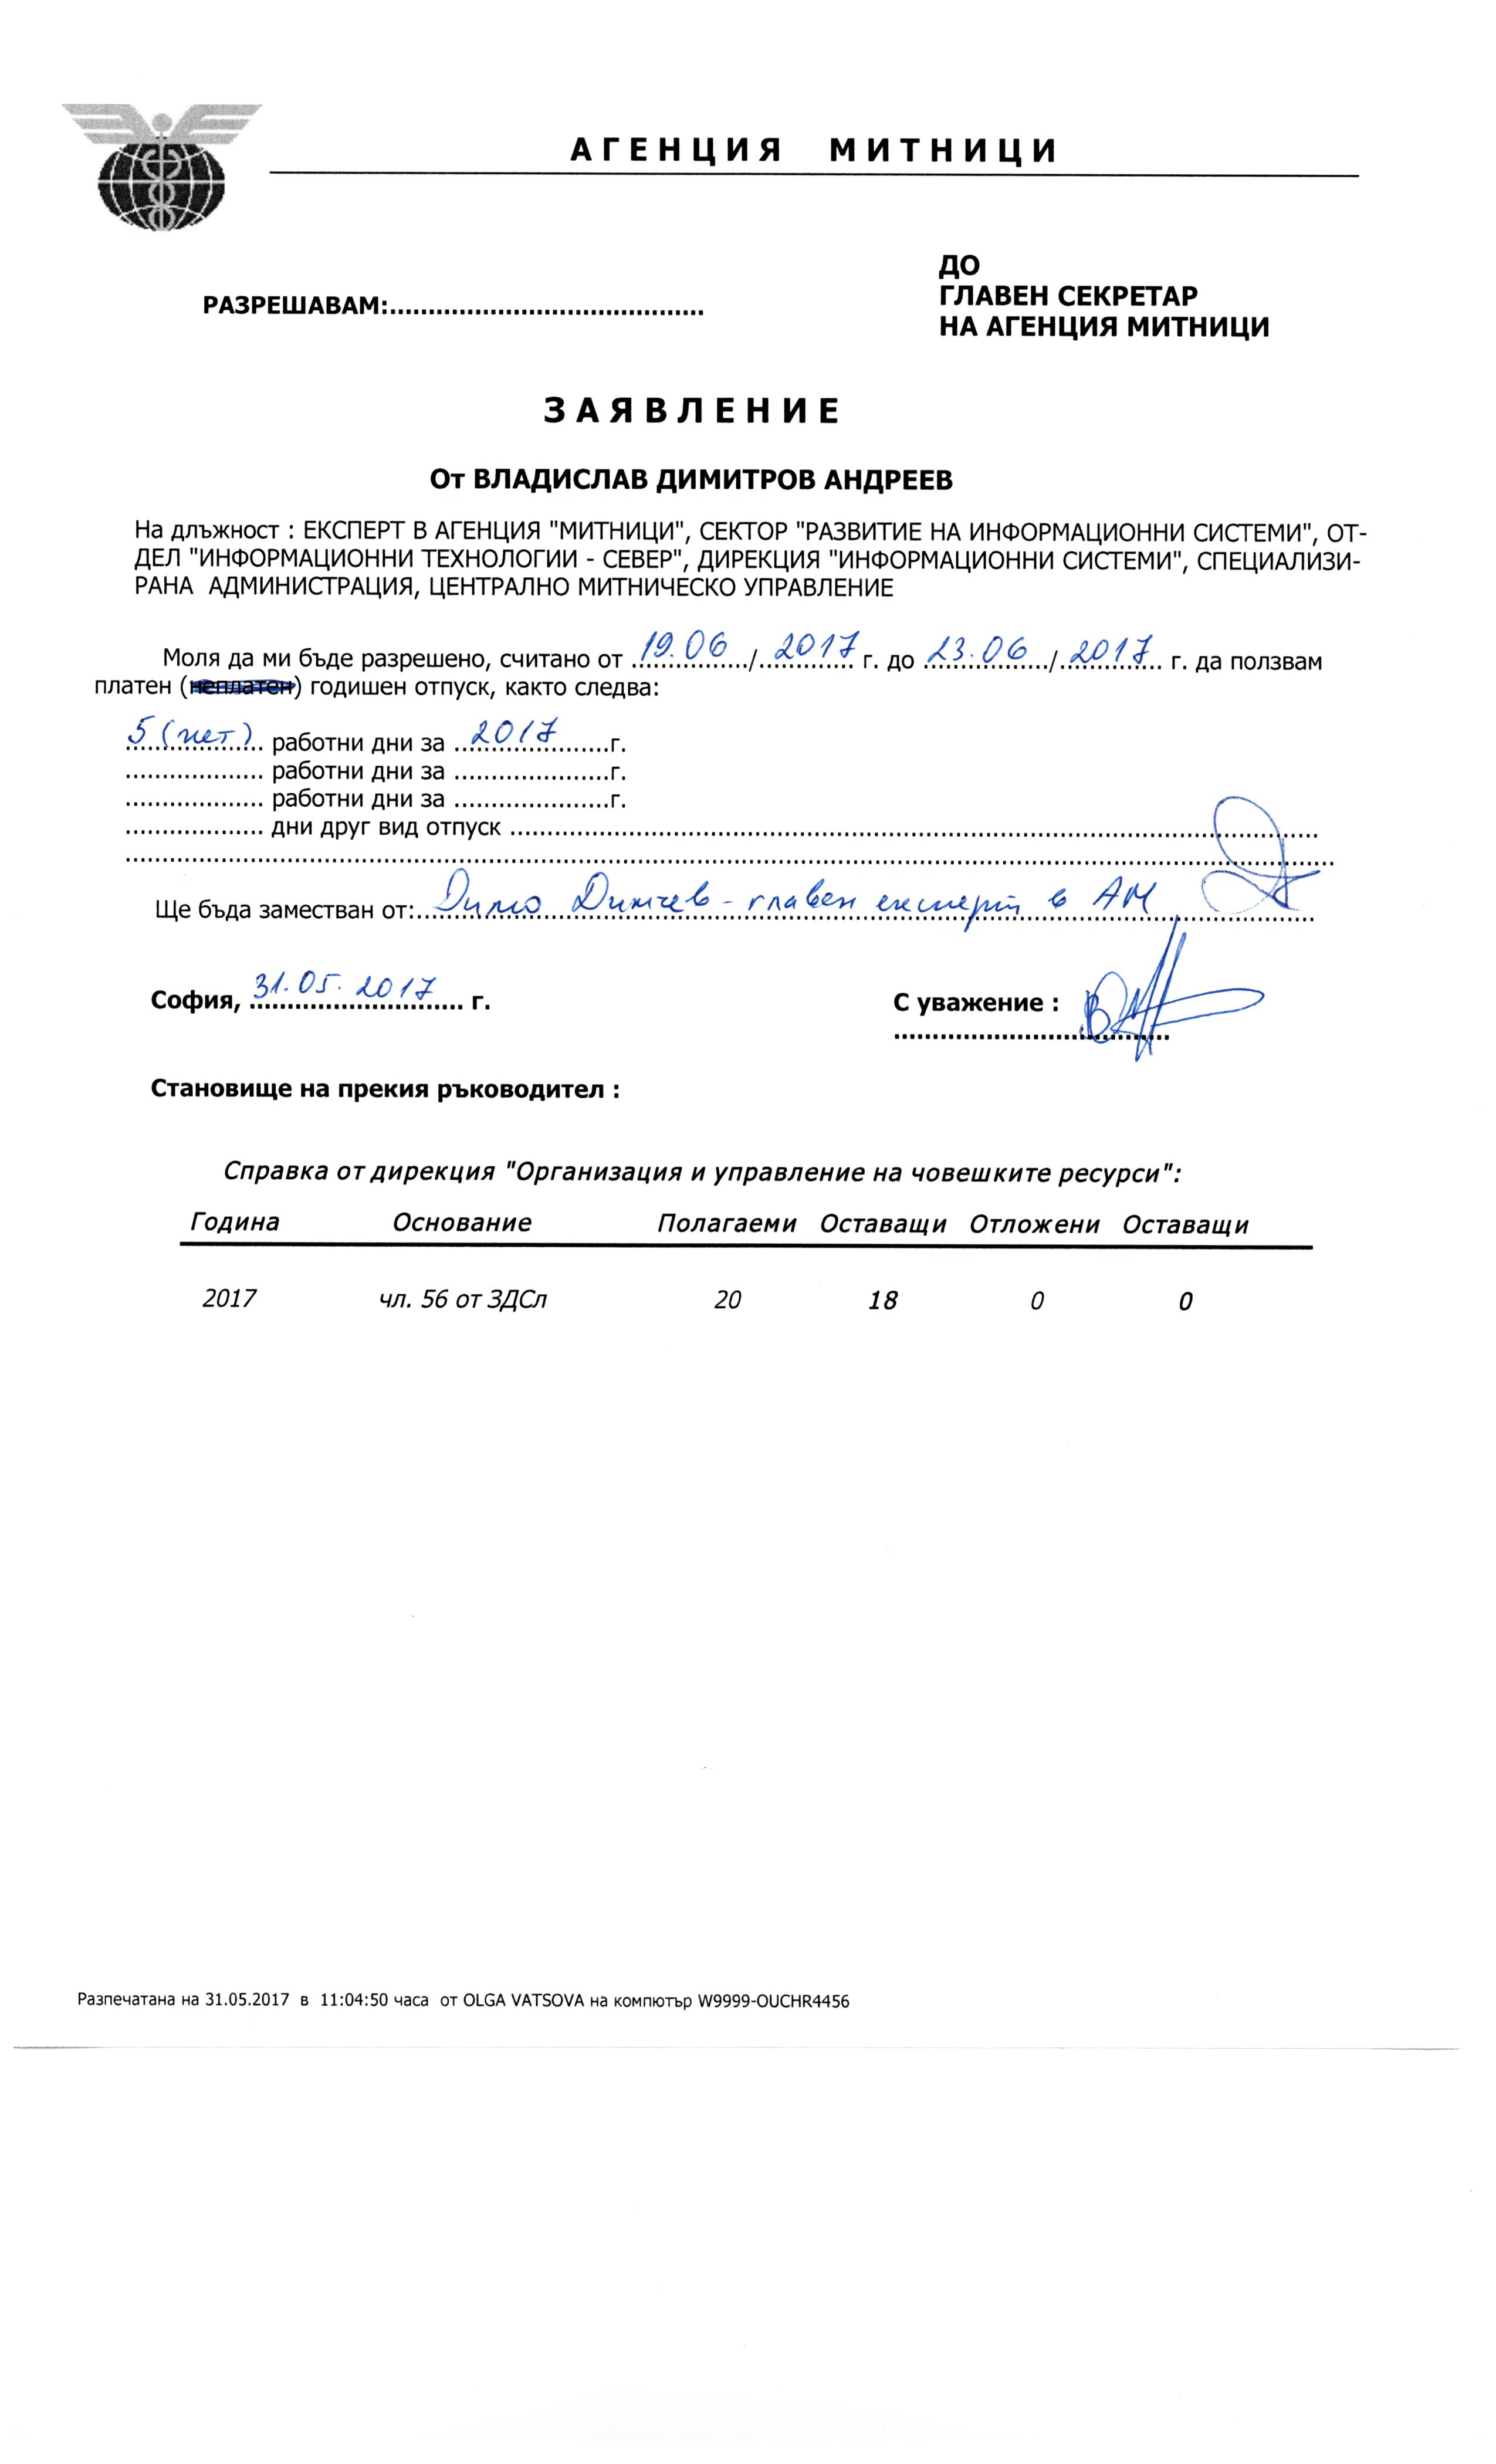 АГЕНЦИЯ МИТНИЦИ
ДО
ГЛАВЕН СЕКРЕТАР
НА АГЕНЦИЯ МИТНИЦИ
РАЗРЕШАВАМ:..........................................
ЗАЯВЛЕНИЕ
От ВЛАДИСЛАВ ДИМИТРОВ АНДРЕЕВ
На длъжност : ЕКСПЕРТ В АГЕНЦИЯ "МИТНИЦИ", СЕКТОР "РАЗВИТИЕ НА ИНФОРМАЦИОННИ СИСТЕМИ", ОТ-
ДЕЛ "ИНФОРМАЦИОННИ ТЕХНОЛОГИИ - СЕВЕР", ДИРЕКЦИЯ "ИНФОРМАЦИОННИ СИСТЕМИ", СПЕЦИАЛИЗИ-
РАНА АДМИНИСТРАЦИЯ, ЦЕНТРАЛНО МИТНИЧЕСКО УПРАВЛЕНИЕ
Моля да ми бъде разрешено, считано от 19.06 / 2017 г. до 23.06 / 2017 г. да ползвам
платен (неплатен) годишен отпуск, както следва:
5 (пет) работни дни за 2017 г.
.................. работни дни за .....................г.
.................. работни дни за .....................г.
.................. дни друг вид отпуск ..........................................................
Ще бъда заместван от: Димо Димчев - главен експерт в АМ
София, 31.05.2017 г.
С уважение :
Становище на прекия ръководител :
Справка от дирекция "Организация и управление на човешките ресурси":
Година Основание Полагаеми Оставащи Отложени Оставащи
2017 чл. 56 от ЗДСл 20 18 0 0
Разпечатана на 31.05.2017 в 11:04:50 часа от OLGA VATSOVA на компютър W9999-OUCHR4456